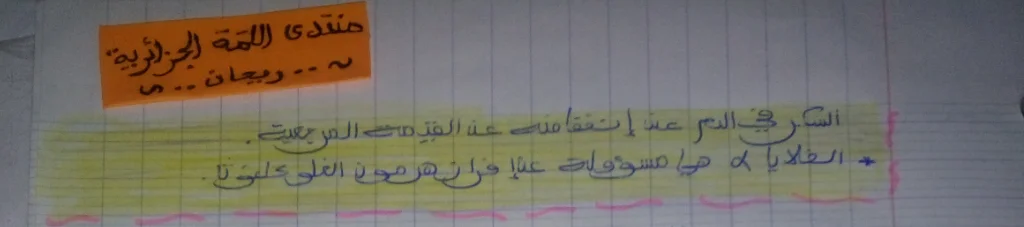 منتدى اللمة الجزائرية
~.. ريحان.. ~
السكر في الدم عند إنخفاضه عند القيمة المرجعية.
* الخلايا α هي مسؤولة على إفراز هرمون الغلوكاغون.